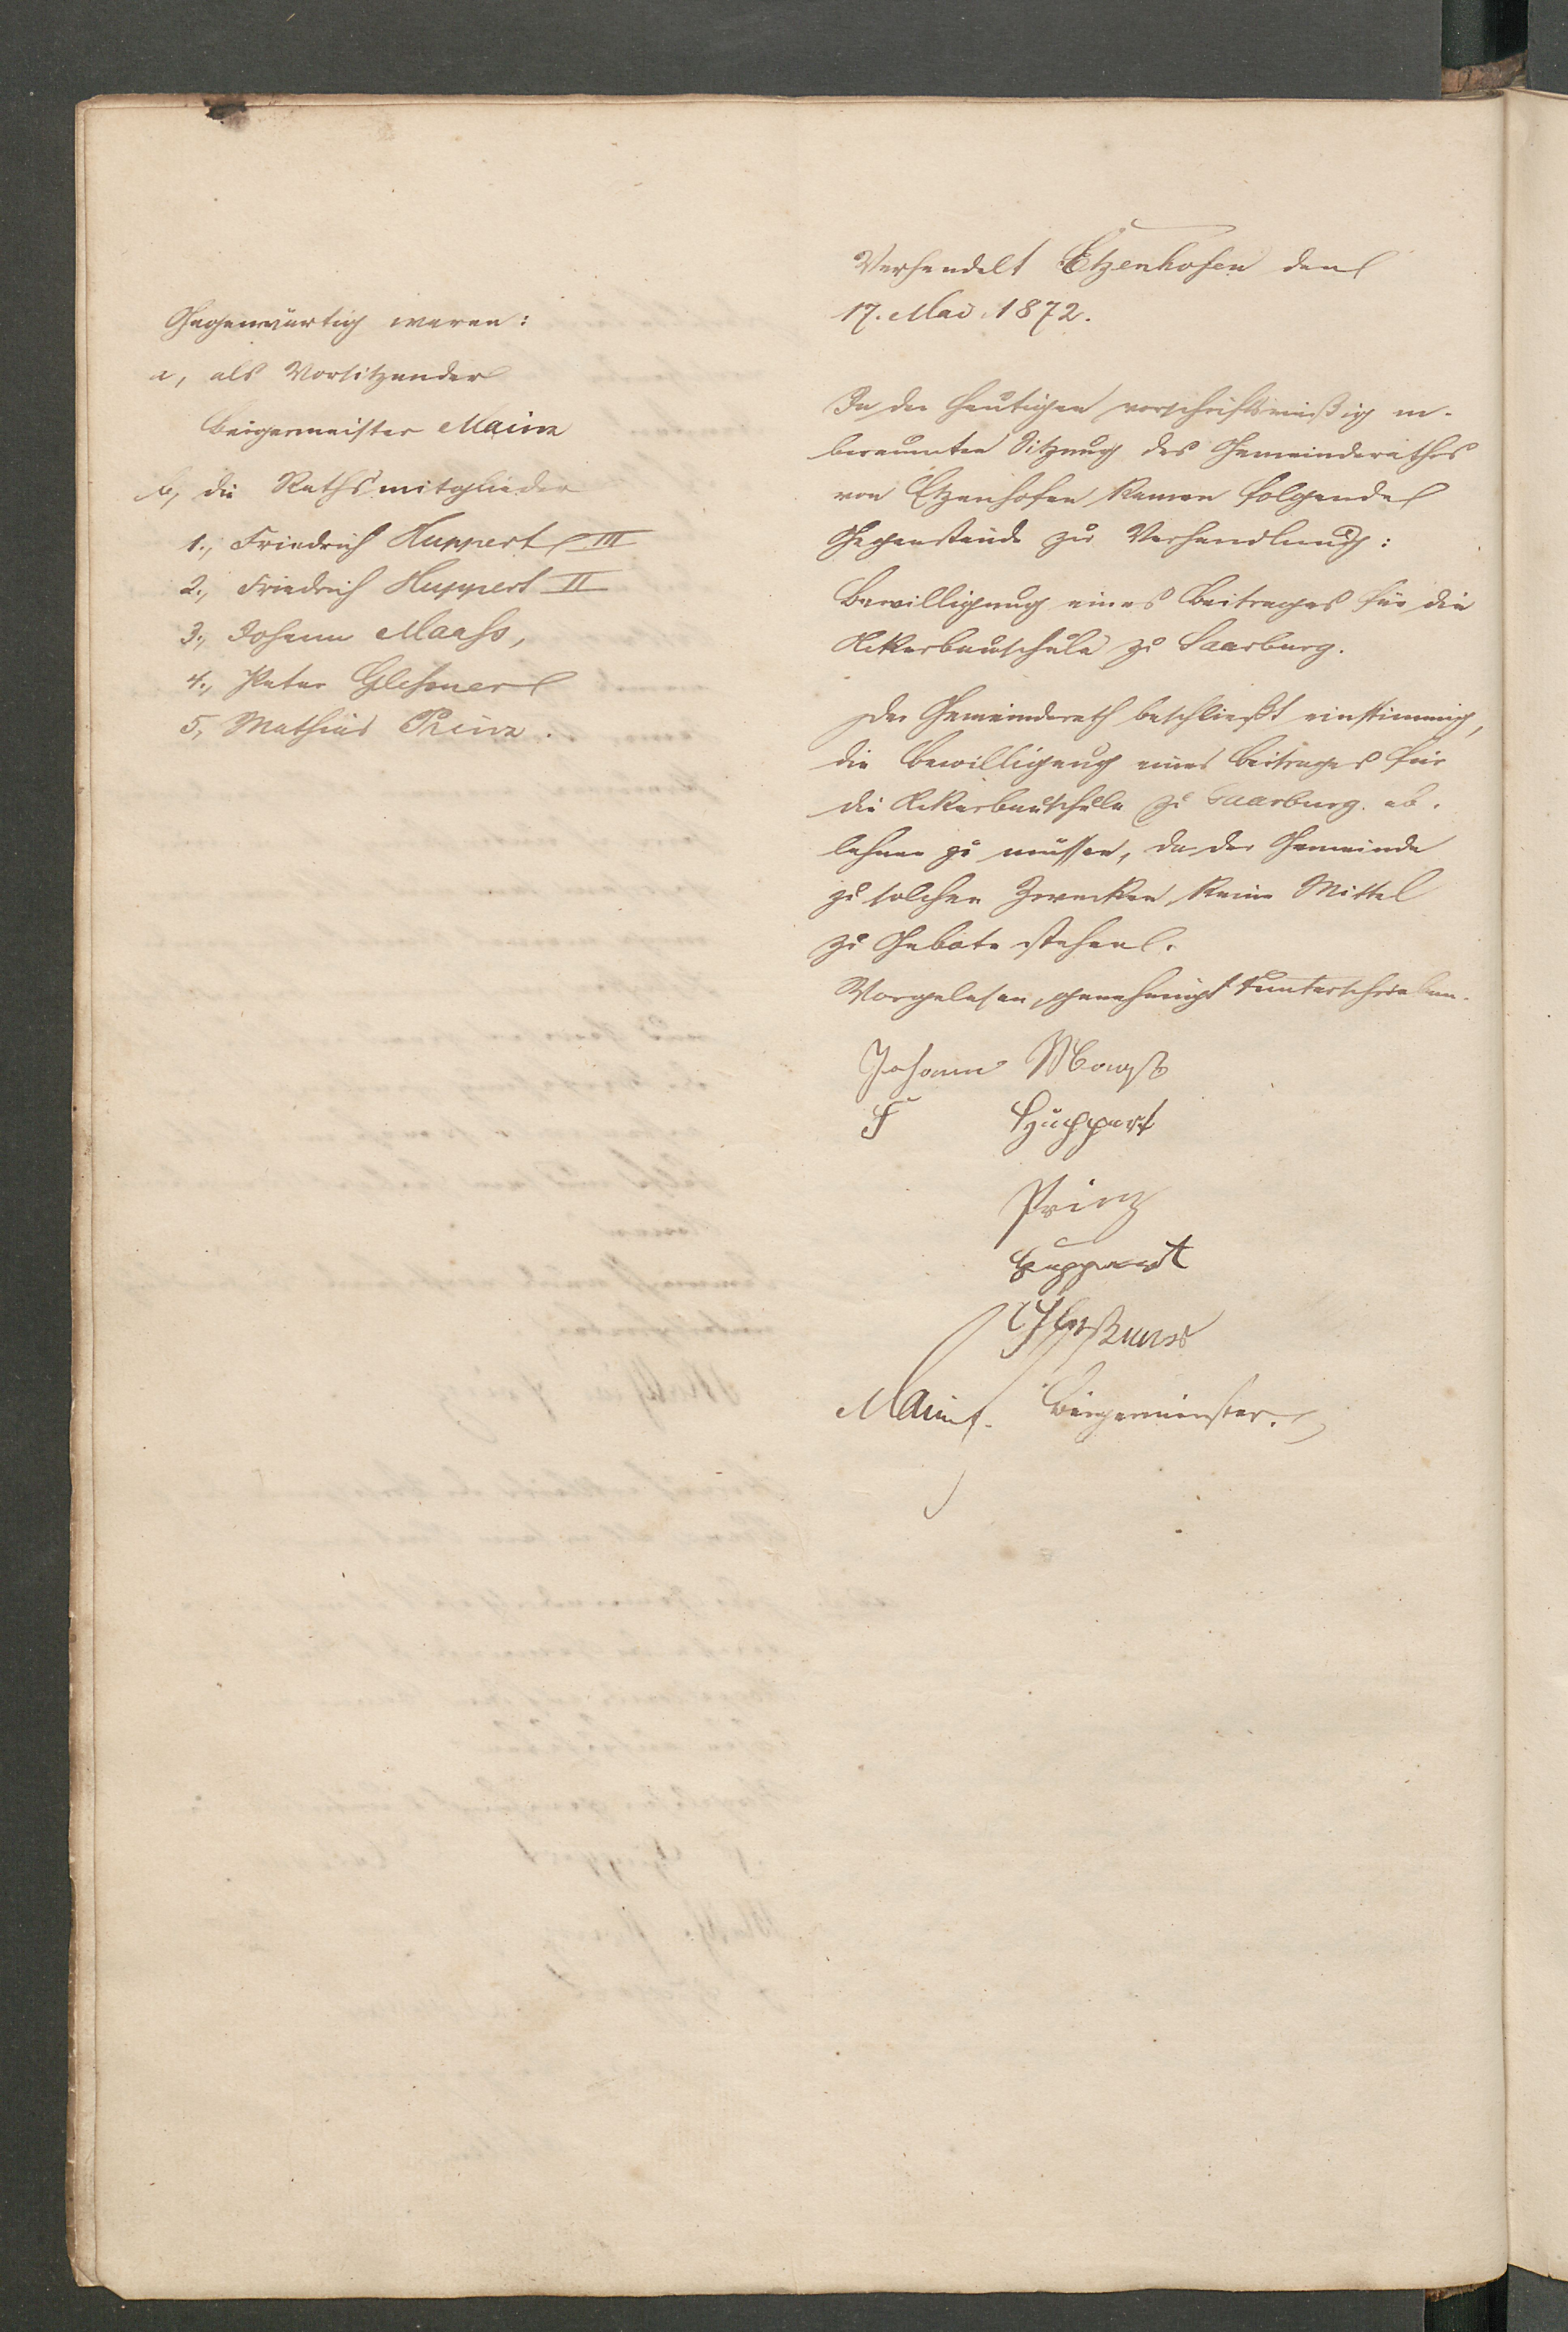 Gegenwärtig waren:
a, als Vorsitzender
Bürgermeister Mainz
b, die Rathsmitglieder
1., Friedrich Huppert III
2., Friedrich Huppert II
3., Johann Maahs,
4., Peter Glehsner
5, Mathias Prinz.
Verhandelt Etzenhofen den
17. Mai 1872.
In der heutigen vorschriftsmäßig an-
beraumten Sitzung des Gemeinderathes
von Etzenhofen kamen folgende
Gegenstände zur Verhandlung:
Bewilligung eines Beitrages für die
Ackerbauschule zu Saarburg.
Der Gemeinderath beschließt einstimmig,
die Bewilligung eines Beitrages für
die Ackerbauschule zu Saarburg ab-
lehnen zu müssen, da der Gemeinde
zu solchen Zwecken keine Mittel
zu Gebote stehen.
Vorgelesen, genehmigt & unterschrieben.
Johann Maaß
F Huppert
Prinz
Huppert
Gleßner
Mainz. Bürgermeister.